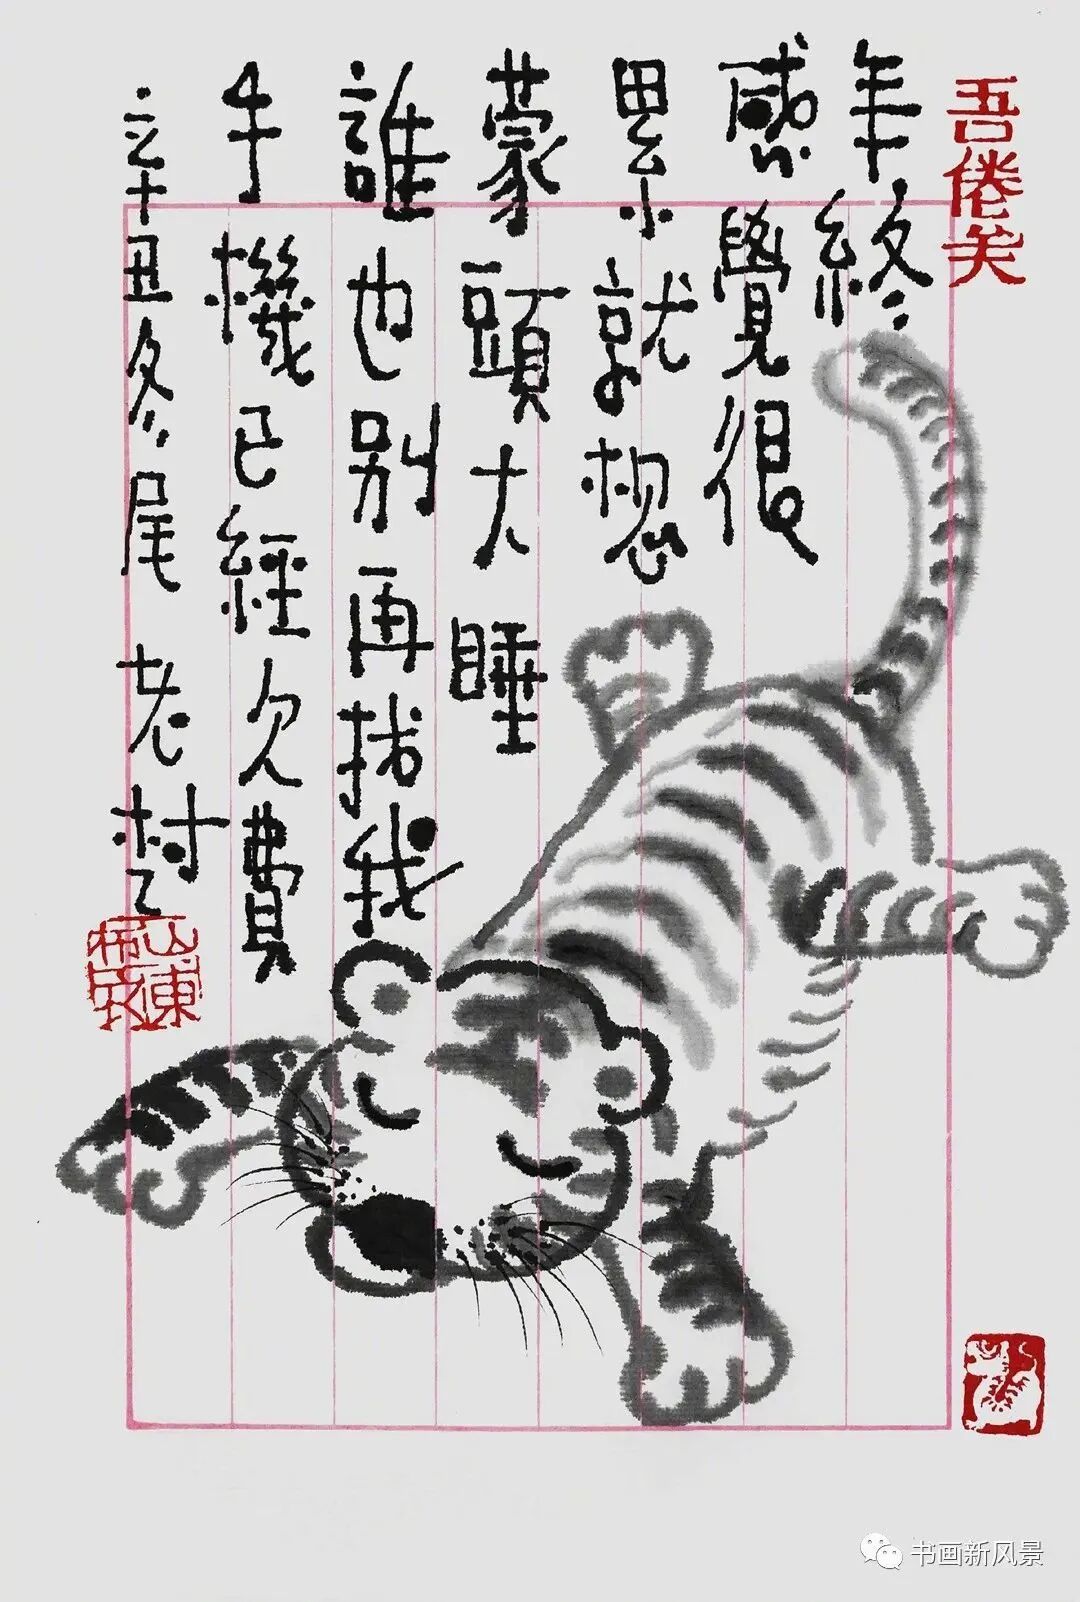 吾倦矣
年終
感覺很
累就想
蒙頭大睡
誰也别再找我
手機已經欠費
辛丑冬尾 老村
山東
书画新风景